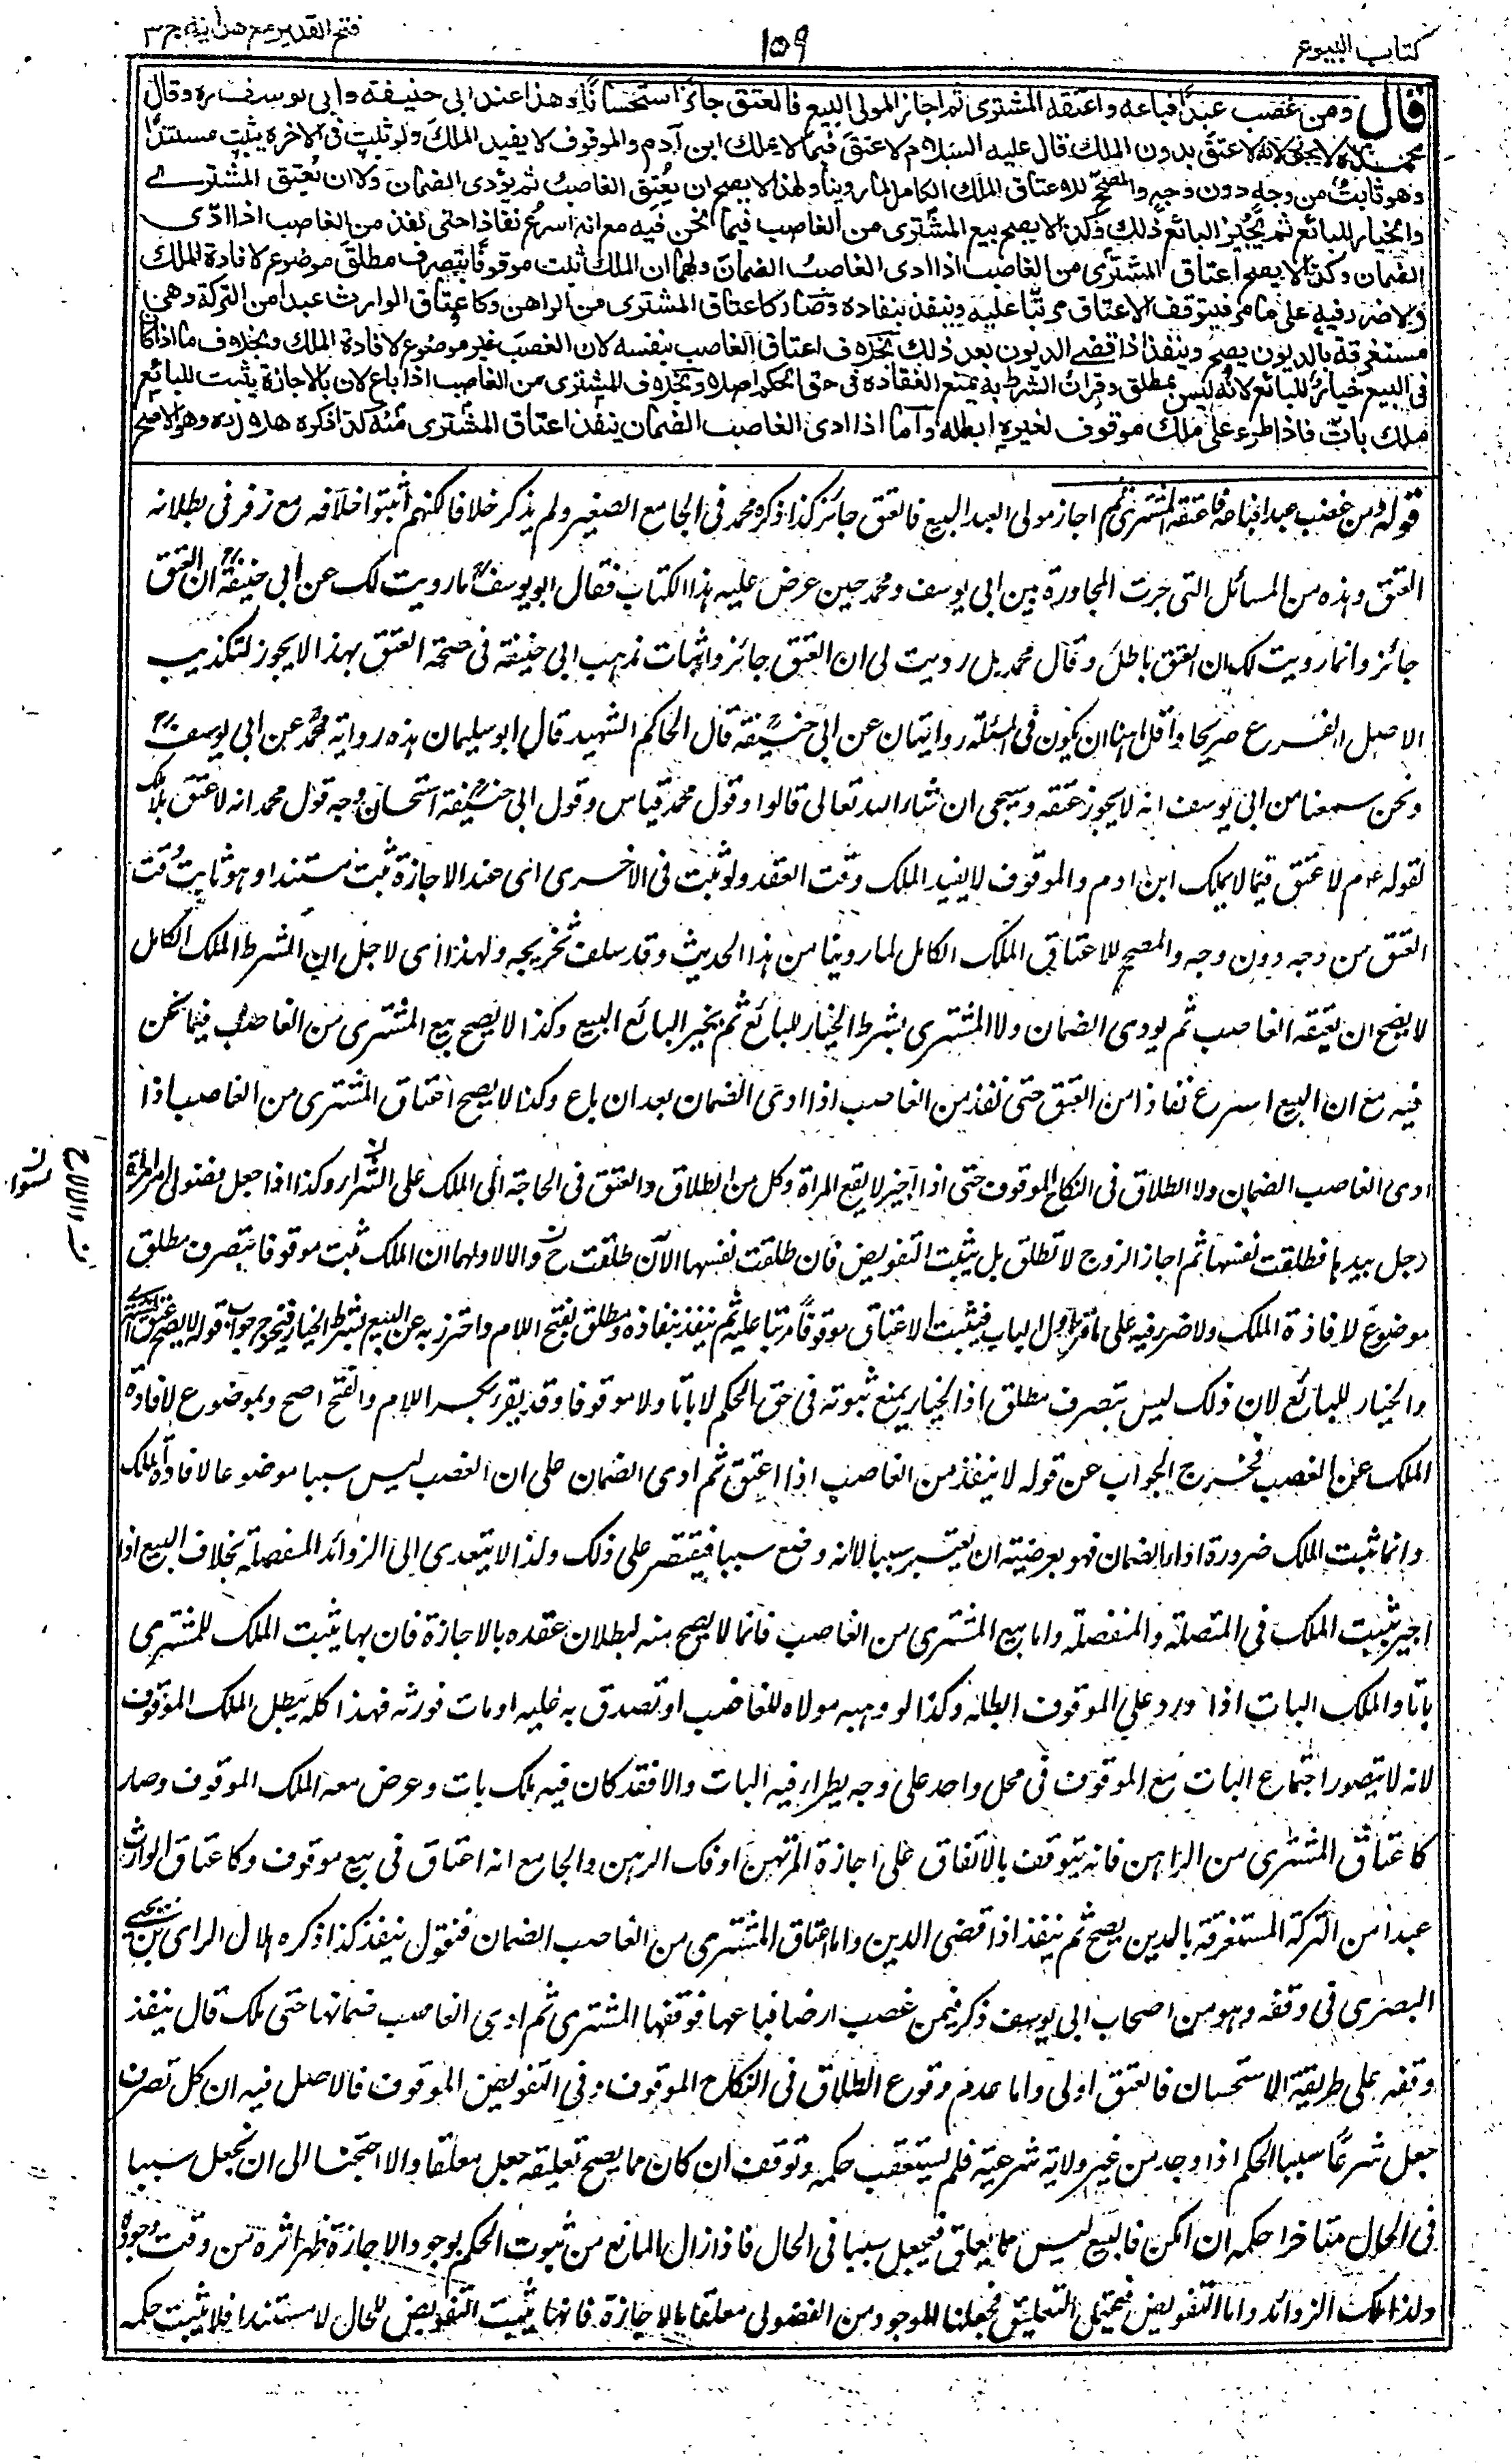 كتاب البيوع
١٥٩
فتح القدير مع هدايه ج ٣
قال ومن غصب عبدا فباعه واعتقه المشترى ثم اجاز المولى البيع فالعتق جائز استحسانا وهذا عند ابى حنيفة وابى يوسف ره وقال
محمد ره لا يجوز لانه لا عتق بدون الملك قال عليه السلام لا عتق فيما لا يملك ابن آدم والموقوف لا يفيد الملك ولو ثبت فى الاخرة يثبت مستندا
وهو ثابت من وجه دون وجه والمصحح للاعتاق الملك الكامل لما روينا ولهذا لا يصح ان يعتق الغاصب ثم يؤدى الضمان ولا ان يعتق المشترے
والخيار للبائع ثم يجيز البائع ذلك وكذا لا يصح بيع المشترى من الغاصب فيما نحن فيه مع انه اسرع نفاذا حتى نفذ من الغاصب اذا ادى
الضمان وكذا لا يصح اعتاق المشترى من الغاصب اذا ادى الغاصب الضمان ولهما ان الملك ثبت موقوفا بتصرف مطلق موضوع لافادة الملك
ولا ضرر فيه على ما مر فيتوقف الاعتاق مرتبا عليه وينفذ بنفاده وصار كاعتاق المشترى من الراهن وكاعتاق الوارث عبدا من التركة وهى
مستغرقة بالديون يصح وينفذ اذا قضے الديون بعد ذلك بخلاف اعتاق الغاصب بنفسه لان الغصب غير موضوع لافادة الملك وبخلاف ما اذا كان
فى البيع خيار للبائع لانه ليس بمطلق وقران الشرط به يمنع انعقاده فى حق الحكم اصلا وبخلاف المشترى من الغاصب اذا باع لان بالاجازة يثبت للبائع
ملك بات فاذا طرء على ملك موقوف لغيره ابطله واما اذا ادى الغاصب الضمان ينفذ اعتاق المشترى منه كذا ذكره هلال ره وهو الاصح
قوله ومن غصب عبدا فباعه فاعتقه المشترى ثم اجاز مولى العبد البيع فالعتق جائز كذا ذكره محمد فى الجامع الصغير ولم يذكر خلافا لكنهم اثبتوا خلافه مع زفر فى بطلانه
العتق وہذه من المسائل التى جرت المجاورة بين ابى يوسف ومحمد حين عرض عليه ہذا الكتاب فقال ابو يوسف ما رويت لك عن ابى حنيفة ان العتق
جائز وانما رويت لك ان العتق باطل وقال محمد بل رويت لى ان العتق جائز واثبات مذہب ابى حنيفة فى صحة العتق بہذا لا يجوز لتكذيب
الاصل الفرع صريحا واقل ہنا ان يكون فى المسئلة روايتان عن ابى حنيفة قال الحاكم الشہيد قال ابو سليمان ہذه رواية محمد عن ابى يوسف
ونحن سمعنا من ابى يوسف انه لا يجوز عتقه وسيجى ان شاء الله تعالى قالوا وقول محمد قياس وقول ابى حنيفة استحسان وجه قول محمد انه لا عتق بلا ملك
لقوله عم م لا عتق فيما لا يملك ابن ادم والموقوف لا يفيد الملك وقت العقد ولو ثبت فى الاخرى اى عند الاجازة ثبت مستندا وہو ثابت وقت
العتق من وجه دون وجه والمصحح للاعتاق الملك الكامل لما روينا من ہذا الحديث وقد سلف تخريجه ولہذا اى لاجل ان الشرط الملك الكامل
لا يصح ان يعتقه الغاصب ثم يودى الضمان ولا المشترى بشرط الخيار للبائع ثم يجيز البائع البيع وكذا لا يصح بيع المشترى من الغاصب فيما نحن
فيه مع ان البيع اسرع نفاذا من العتق حتى نفذ من الغاصب اذا ادى الضمان بعد ان باع وكذا لا يصح اعتاق المشترى من الغاصب اذا
ادى الغاصب الضمان ولا الطلاق فى النكاح الموقوف حتى اذا اجيز لا يقع المراة وكل من الطلاق والعتق فى الحاجة الى الملك على السواء وكذا اذا جعل فضولى امر امراة
رجل بيدہا فطلقت نفسہا ثم اجاز الزوج لا تطلق بل يثبت التفويض فان طلقت نفسہا الآن طلقت ح والا لا ولہما ان الملك ثبت موقوفا بتصرف مطلق
موضوع لافادة الملك ولا ضرر فيه على ما مر اول الباب فيثبت الاعتاق موقوفا مرتبا عليه ثم ينفذ بنفاذه ومطلق بفتح اللام واحترز به عن البيع بشرط الخيار فيخرج جواب قوله لا يصح عتق المشترى
والخيار للبائع لان ذلك ليس بتصرف مطلق اذ الخيار يمنع ثبوته فى حق الحكم لا باتا ولا موقوفا وقد يقرء بكسر اللام والفتح اصح وبموضوع لافادة
الملك عن الغصب فخرج الجواب عن قوله لا ينفذ من الغاصب اذا اعتق ثم ادى الضمان على ان الغصب ليس سببا موضوعا لافادة الملك
وانما ثبت الملك ضرورة اداء الضمان فہو بعرضية ان يعتبر سببا لا انه وضع سببا فيقتصر على ذلك ولذا لا يتعدى الى الزوائد المنفصلة بخلاف البيع اذا
اجيز يثبت الملك فى المتصلة والمنفصلة واما بيع المشترى من الغاصب فانما لا يصح منه لبطلان عقده بالاجازة فان بہا يثبت الملك للمشترى
باتا والملك البات اذا ورد على الموقوف ابطله وكذا لو وہبه مولاه للغاصب او تصدق به عليه او مات فورثه فہذا كله يبطل الملك الموقوف
لانه لا يتصور اجتماع البات مع الموقوف فى محل واحد على وجه يطرأ فيه البات والا فقد كان فيه ملك بات وعرض معه الملك الموقوف وصار
كاعتاق المشترى من الراہن فانه يتوقف بالاتفاق على اجازة المرتہن او فك الرہن والجامع انه اعتاق فى بيع موقوف وكاعتاق الوارث
عبدا من التركة المستغرقة بالدين يصح ثم ينفذ اذا قضى الدين واما اعتاق المشترى من الغاصب الضمان فنقول ينفذ كذا ذكره ہلال الراى بن يحيى
البصرى فى وقفه وہو من اصحاب ابى يوسف ذكر فيمن غصب ارضا فباعہا فوقفہا المشترى ثم ادى الغاصب ضمانہا حتى ملك قال ينفذ
وقفه على طريقة الاستحسان فالعتق اولى واما عدم وقوع الطلاق فى النكاح الموقوف وفى التفويض الموقوف فالاصل فيه ان كل تصرف
جعل شرعا سببا لحكم اذا وجد من غير ولاية شرعية فلم يستعقب حكمه وتوقف ان كان مما يصح تعليقه جعل معلقا والا احتجنا الى ان نجعل سببا
فى الحال متاخرا حكمه ان امكن فالبيع ليس مما يعلق فيجعل سببا فى الحال فاذا زال المانع من ثبوت الحكم بوجود الاجازة ظہر اثره من وقت وجوده
ولذا ملك الزوائد واما التفويض فيحتمل التعليق فجعلنا الموجود من الفضولى معلقا بالاجازة فانہا يثبت التفويض للحال لا مستندا فلا يثبت حكمه